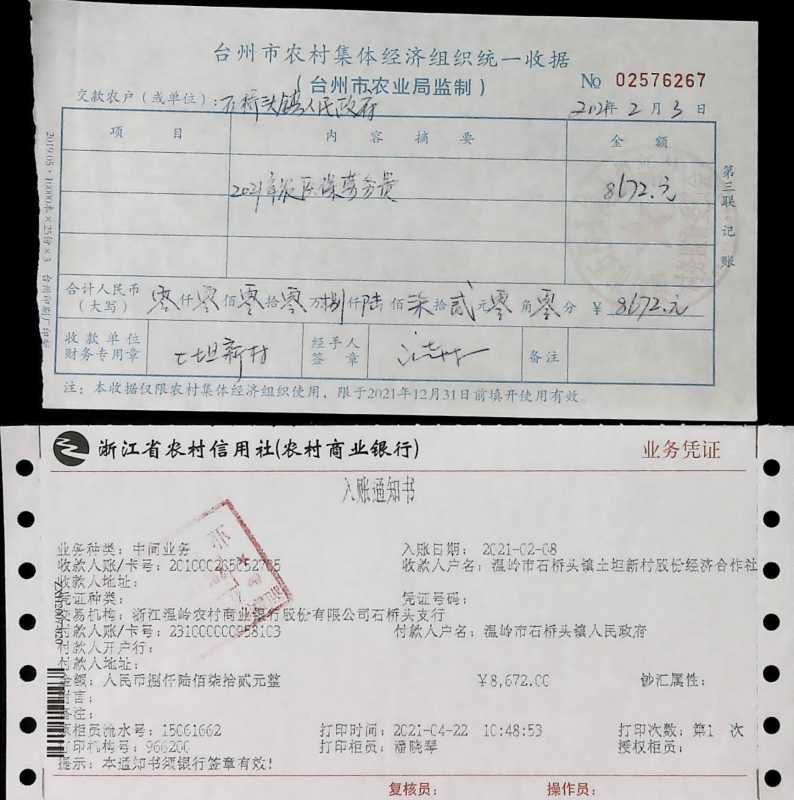 台州市农村集体经济组织统一收据
(台州市农业局监制)
№ 02576267
交款农户(或单位):石桥头镇人民政府 2021年2月3日
项 目 内 容 摘 要 金 额
2021年农医保劳务费 8672.元
合计人民币(大写) 零仟零佰零拾零万捌仟陆佰柒拾贰元零角零分 ¥8672.元
收款单位财务专用章 土坦新村 经手人签章 备注
注:本收据仅限农村集体经济组织使用,限于2021年12月31日前填开使用有效
第三联 记账
2019.05·10000本×25份×3 台州印刷厂印制
浙江省农村信用社(农村商业银行) 业务凭证
入账通知书
业务种类:中间业务 入账日期: 2021-02-08
收款人账/卡号:201000205052705 收款人户名:温岭市石桥头镇土坦新村股份经济合作社
收款人地址:
凭证种类: 凭证号码:
交易机构:浙江温岭农村商业银行股份有限公司石桥头支行
付款人账/卡号:231000000958103 付款人户名:温岭市石桥头镇人民政府
付款人开户行:
付款人地址:
金额:人民币捌仟陆佰柒拾贰元整 ¥8,672.00 钞汇属性:
附言:
备注:
原柜员流水号:15061662 打印时间:2021-04-22 10:48:53 打印次数:第1 次
打印机构号:966200 打印柜员:潘晓琴 授权柜员:
提示:本通知书须银行签章有效!
复核员: 操作员: